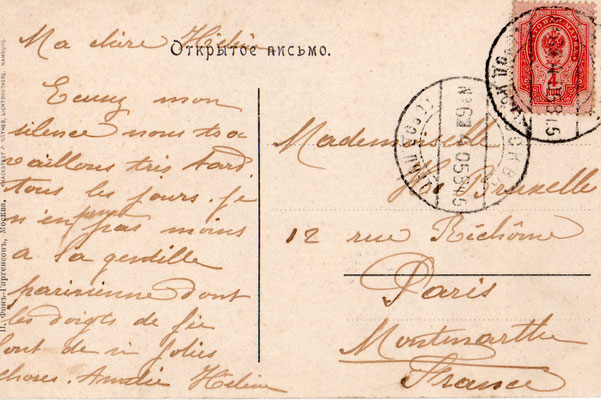 Ma chère Hélène
Открытое письмо.
Excusez mon
silence nous tra
vaillons très tard
tous les jours. je
n'en pense pas moins
a la gentille
parisienne dont
les doigts de fée
font de si jolies
choses. Amélie Hélène
Mademoiselle
Bruxelle
12 rue Richôme
Paris
Montmartre
France
П. Фонъ-Гиргенсонъ, Москва.